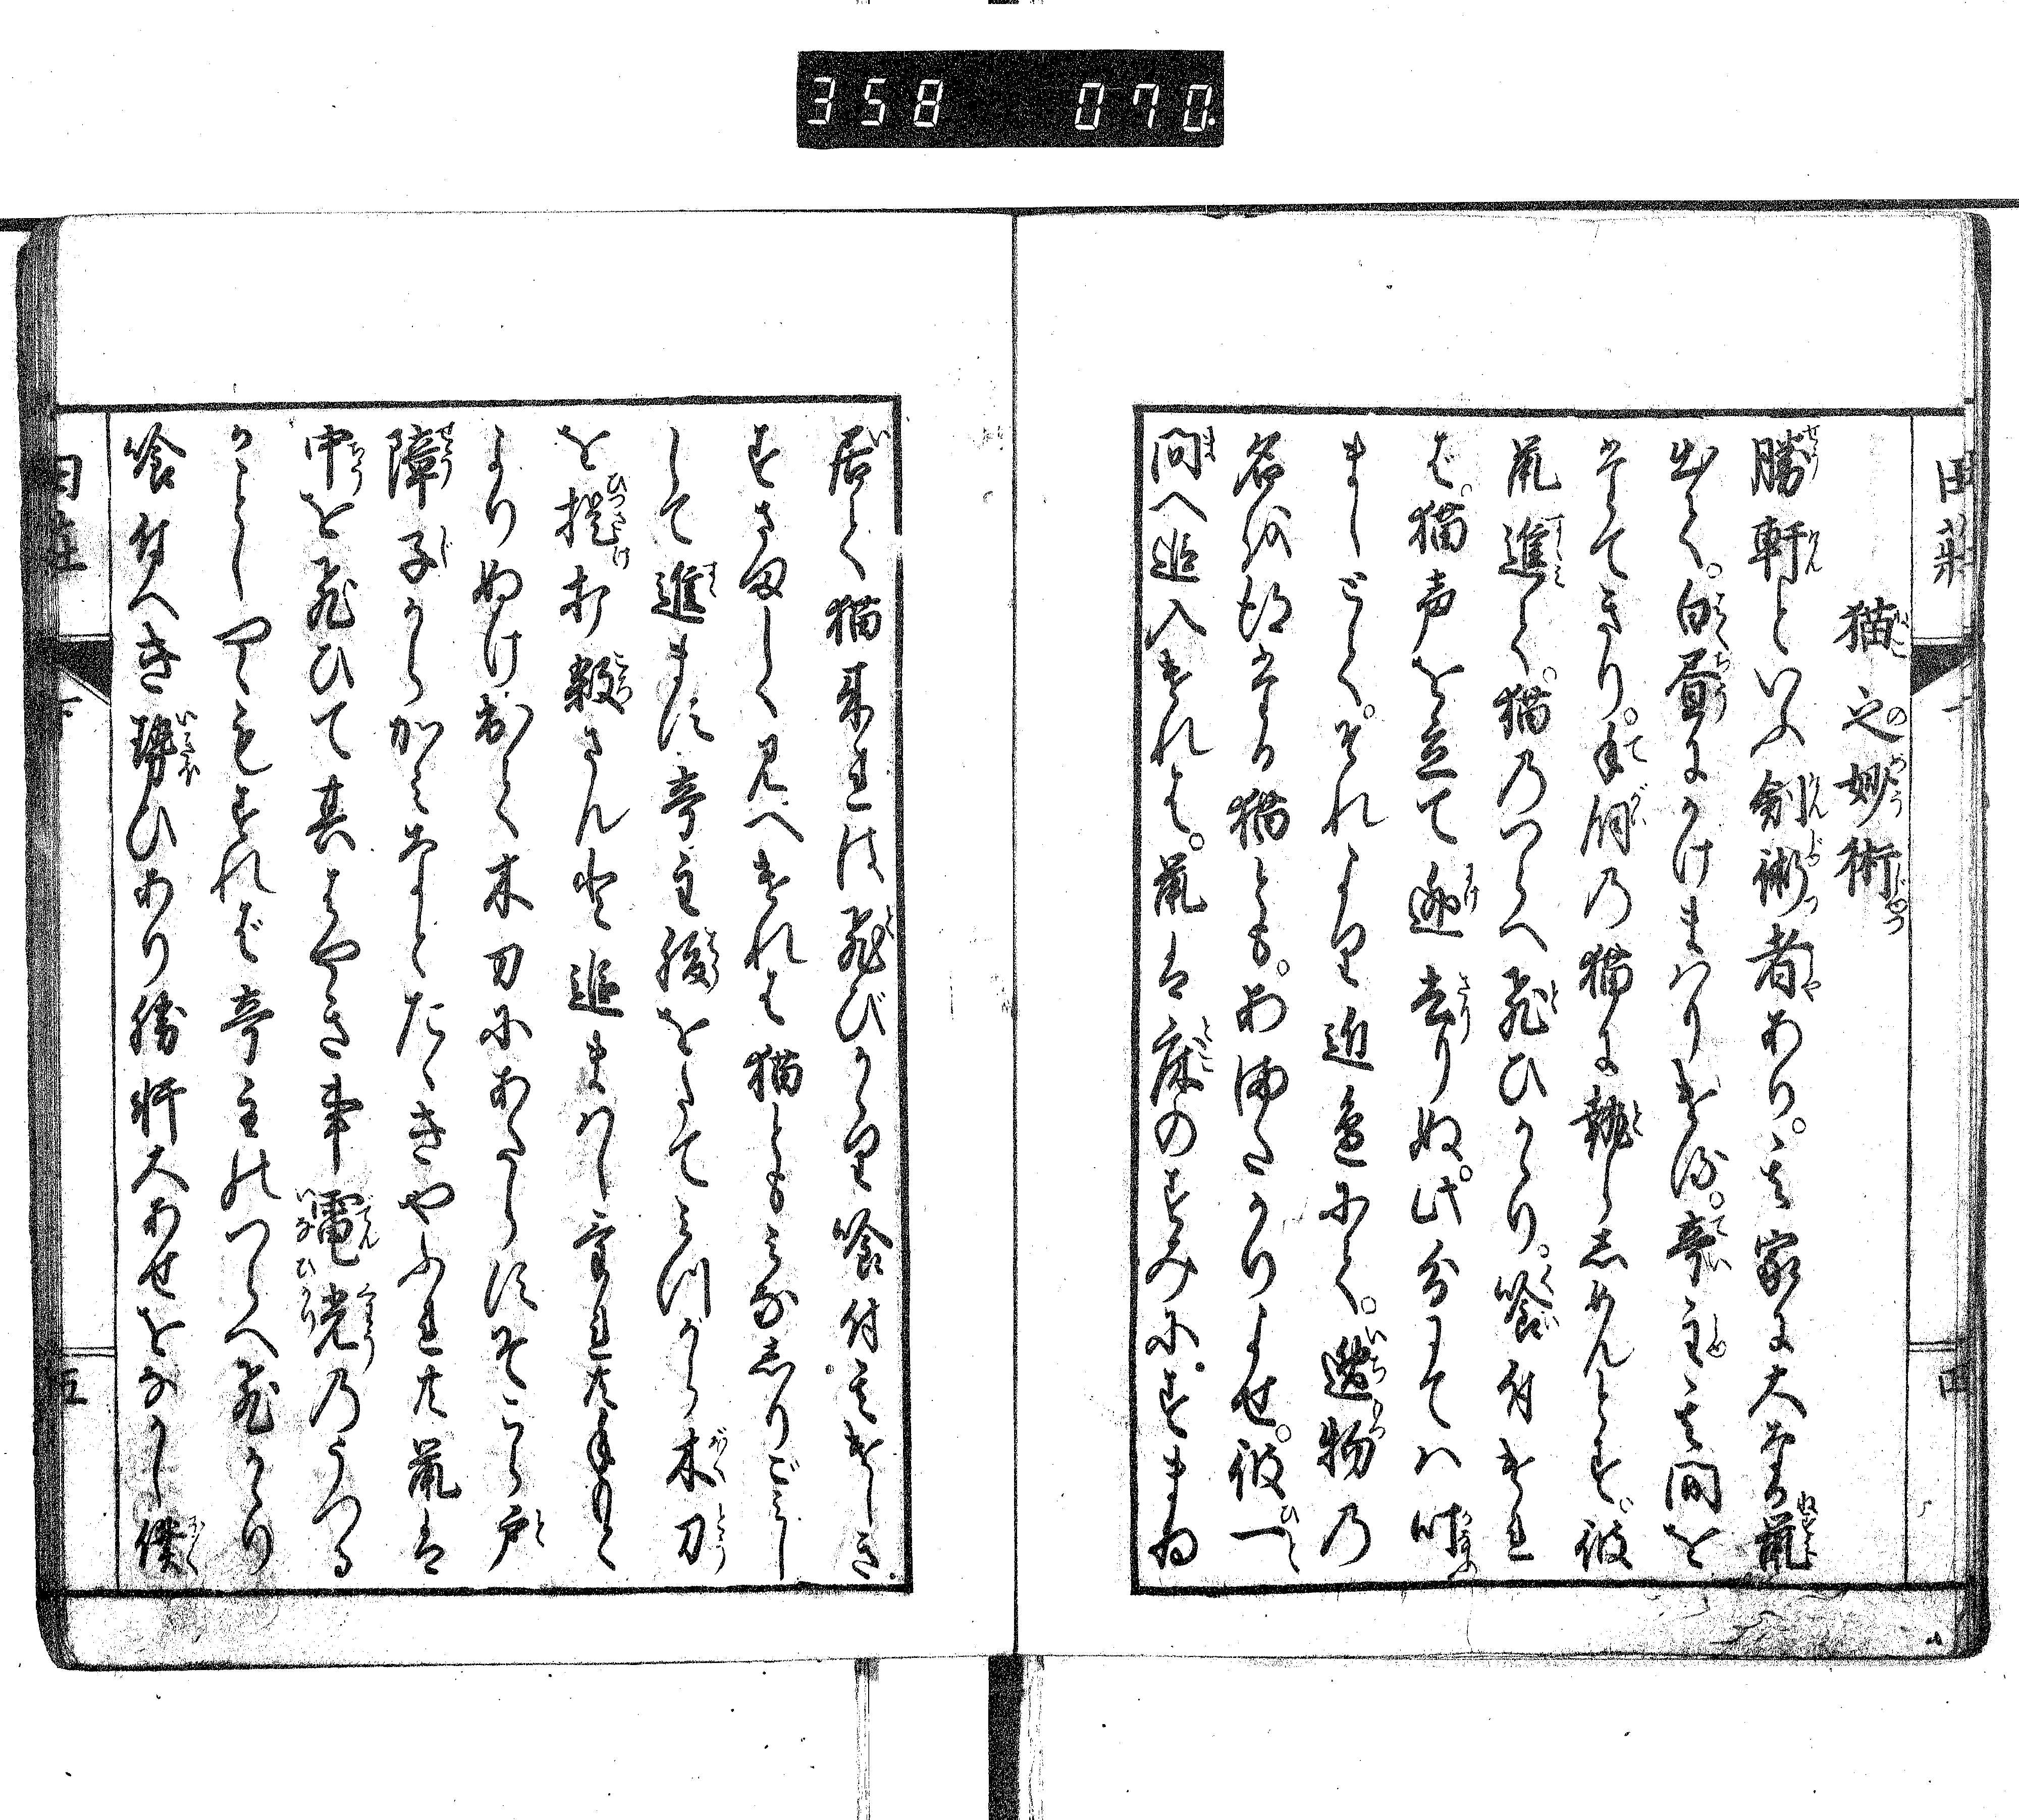 358 070
田荘
猫之妙術
勝軒といふ剣術者あり。其家に大なる鼠
出て。白昼にかけまはりける。亭主其間を
たてきり。手飼の猫に執らしめんとす。彼
鼠進て。猫のつらへ飛ひかゝり。喰付けれ
ば。猫声を立て逃去りぬ。此分にては叶
ましとて。それより近邊にて。逸物の
名を得たる猫ども。あまたかりよせ。彼一
間へ追入けれは。鼠は床のすみに。すまゐ
居て猫来れは飛びかゝり喰付其けしき
すさましく見へけれは猫ども皆しりごみ
して進ます亭主腹をたてみつから木刀
を提打殺さんと追まはしけれ共手もと
よりぬけ出て木刀にあたらすそこら戸
障子からかみなとたゝきやふれ共鼠は
中を飛ひて其はやき事電光のうつる
かことしやゝもすれば亭主のつらへ飛かゝり
喰付へき勢ひあり勝軒大あせをなかし僕